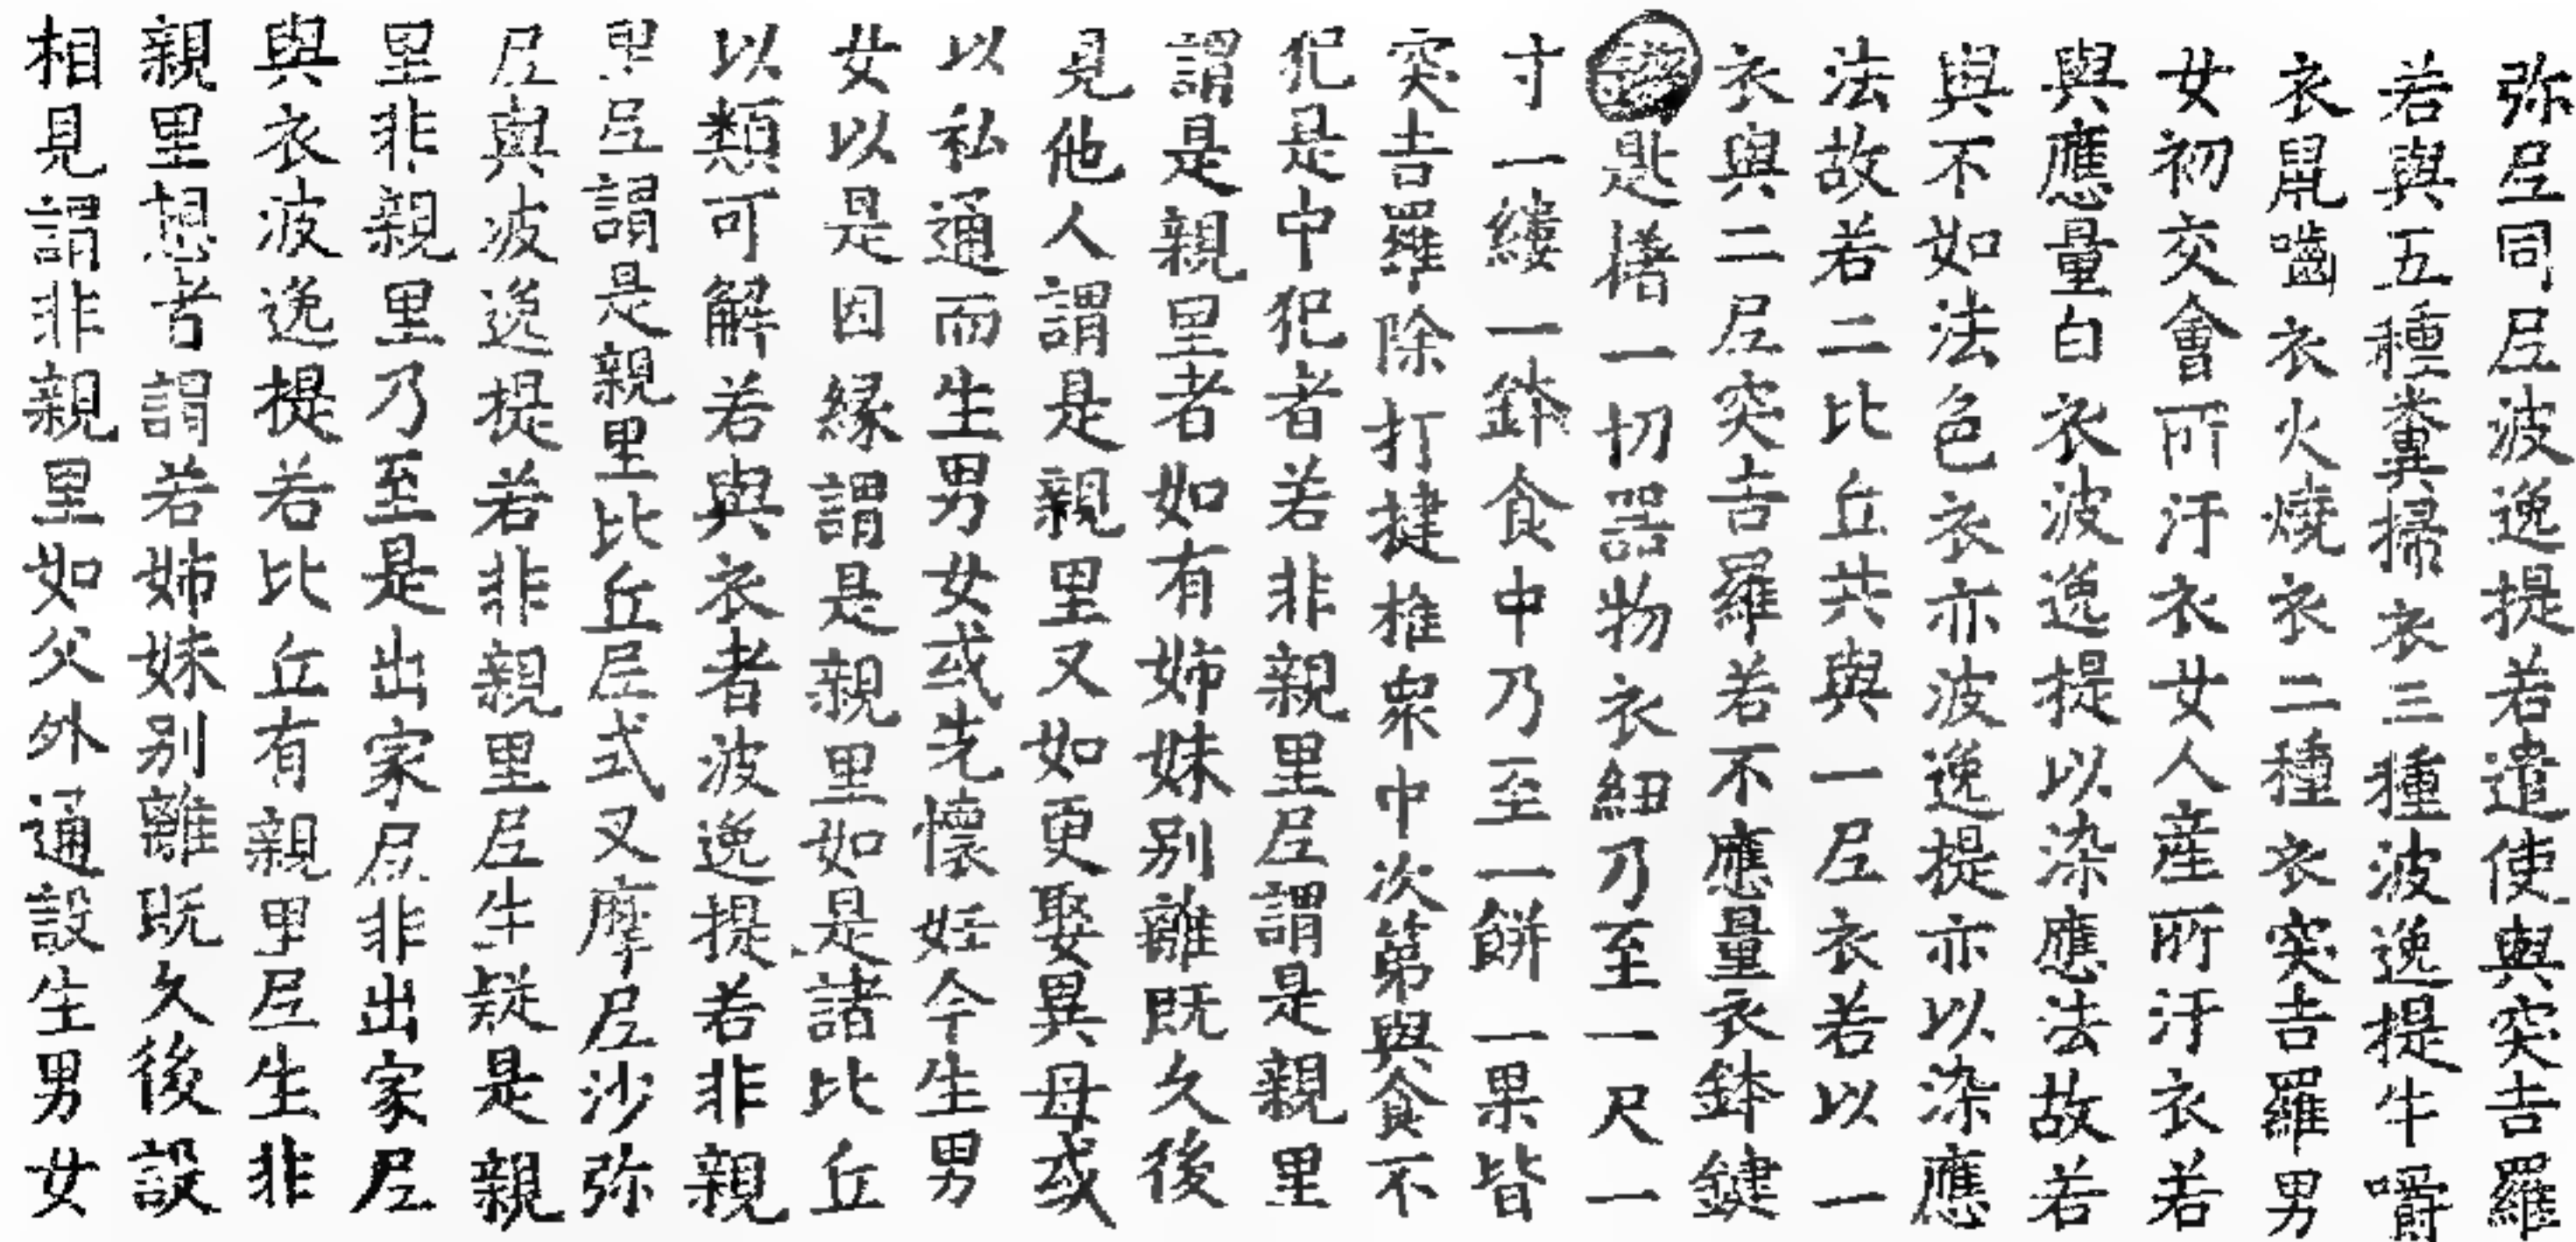 弥尼同尼波逸提若遣使與突吉羅
若與五種糞掃衣三種波逸提牛嚼
衣鼠嚙衣火燒衣二種衣突吉羅男
女初交會所汙衣女人産所汙衣若
與應量白衣波逸提以染應法故若
與不如法色衣亦波逸提亦以染應
法故若二比丘共與一尼衣若以一
衣與二尼突吉羅若不應量衣鉢鍵
匙㯰一切器物衣紐乃至一尺一
寸一縷一鉢食中乃至一餅一果皆
突吉羅除打揵椎衆中次第與食不
犯是中犯者若非親里尼謂是親里
謂是親里者如有姊妹別離既久後
見他人謂是親里又如更娶異母或
以私通而生男女或先懷妊今生男
女以是因縁謂是親里如是諸比丘
以類可解若與衣者波逸提若非親
里尼謂是親里比丘尼式叉摩尼沙弥
尼與波逸提若非親里尼生疑是親
里非親里乃至是出家尼非出家尼
與衣波逸提若比丘有親里尼生非
親里想者謂若姊妹別離既久後設
相見謂非親里如父外通設生男女